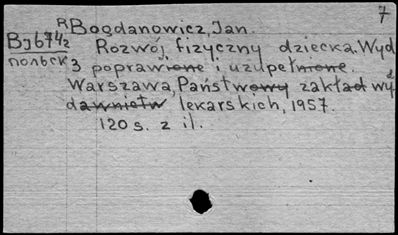 7
R Bogdanowicz, Jan.
Bj6742 Rozwój fizyczny dziecka. Wyd
польск 3 poprawione i uzupełnione.
Warszawa, Państwowy zakład wy
dawnictw lekarskich, 1957.
120 s. z il.